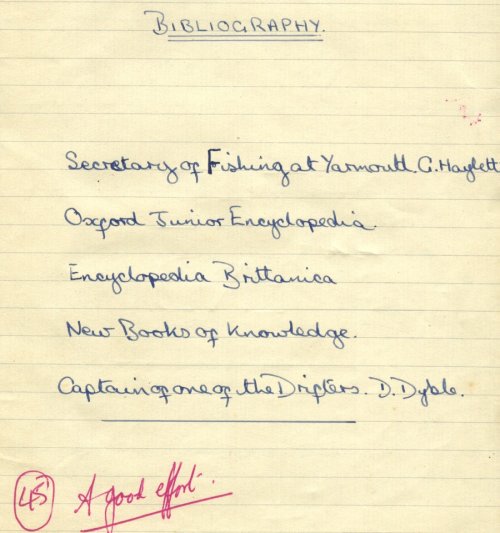 BIBLIOGRAPHY.
Secretary of Fishing at Yarmouth. G. Haylett
Oxford Junior Encyclopedia.
Encyclopedia Brittanica
New Books of Knowledge.
Captain of one of the Drifters. D. Dyble.
45 A good effort.